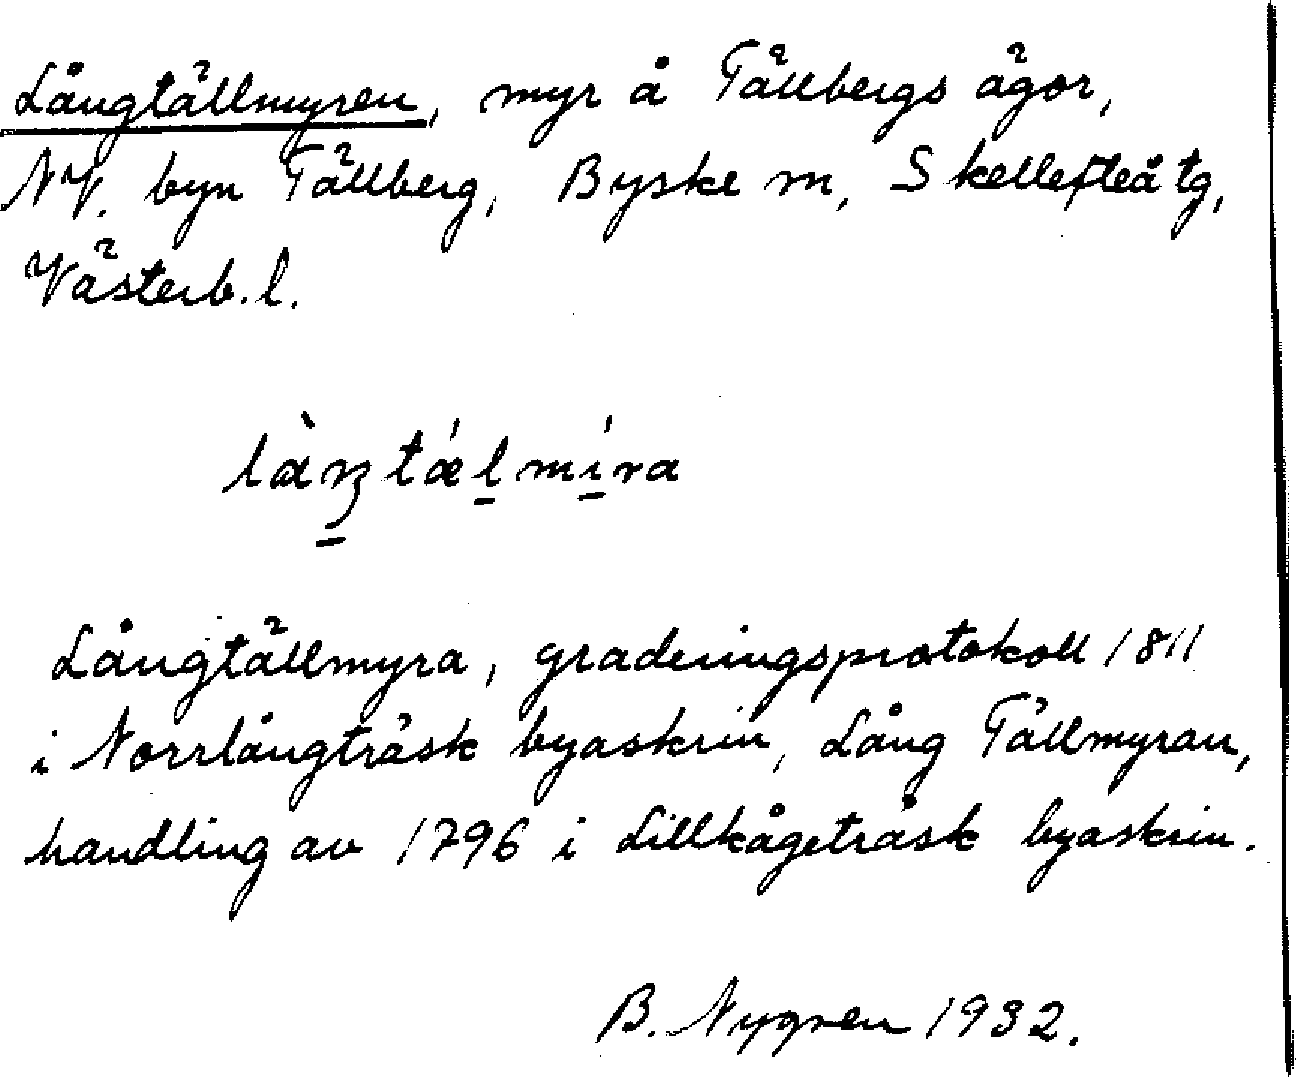 Långtällmyren, myr å Tällbergs ägor,
NV. byn Tällberg, Byske sn, Skellefteå tg,
Västerb. l.
làŋtǽlmíra
Långtällmyra, graderingsprotokoll 1811
i Norrlångträsk byaskrin, Lång Tällmyran,
handling av 1796 i Lillkågeträsk byaskrin.
B. Nygren 1932.